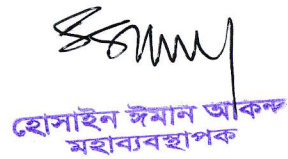 হোসাইন ঈমান আকন্দ
মহাব্যবস্থাপক